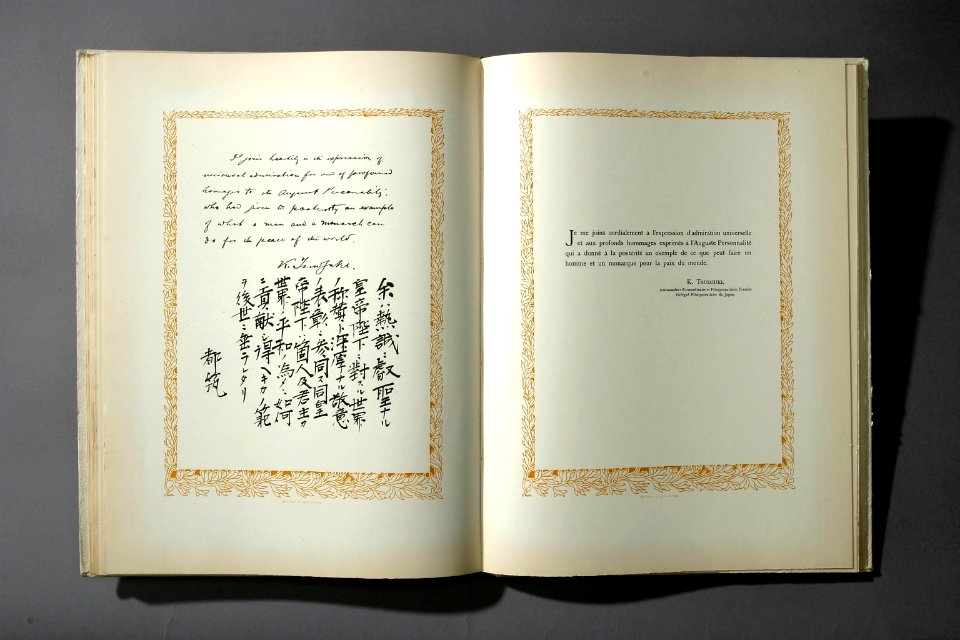 I join heartily in the expression of
universal admiration for and of profound
homages to the August Personality,
who had given to posterity an example
of what a man and a monarch can
do for the peace of the world.
K. Tsudzuki.
余ハ熱誠ニ叡聖ナル
皇帝陛下ニ對スル世界
ノ称賛ト深厚ナル敬意
ノ表彰ニ参同ス同皇
帝陛下ハ箇人及君主カ
世界ノ平和ノ為メニ如何
ニ貢献シ得ヘキカノ範
ヲ後世ニ垂ラレタリ
都筑
Je me joins cordialement à l'expression d'admiration universelle
et aux profonds hommages exprimés à l'Auguste Personnalité
qui a donné à la postérité un exemple de ce que peut faire un
homme et un monarque pour la paix du monde.
K. Tsudzuki,
Ambassadeur Extraordinaire et Plénipotentiaire, Premier
Délégué Plénipotentiaire du Japon.